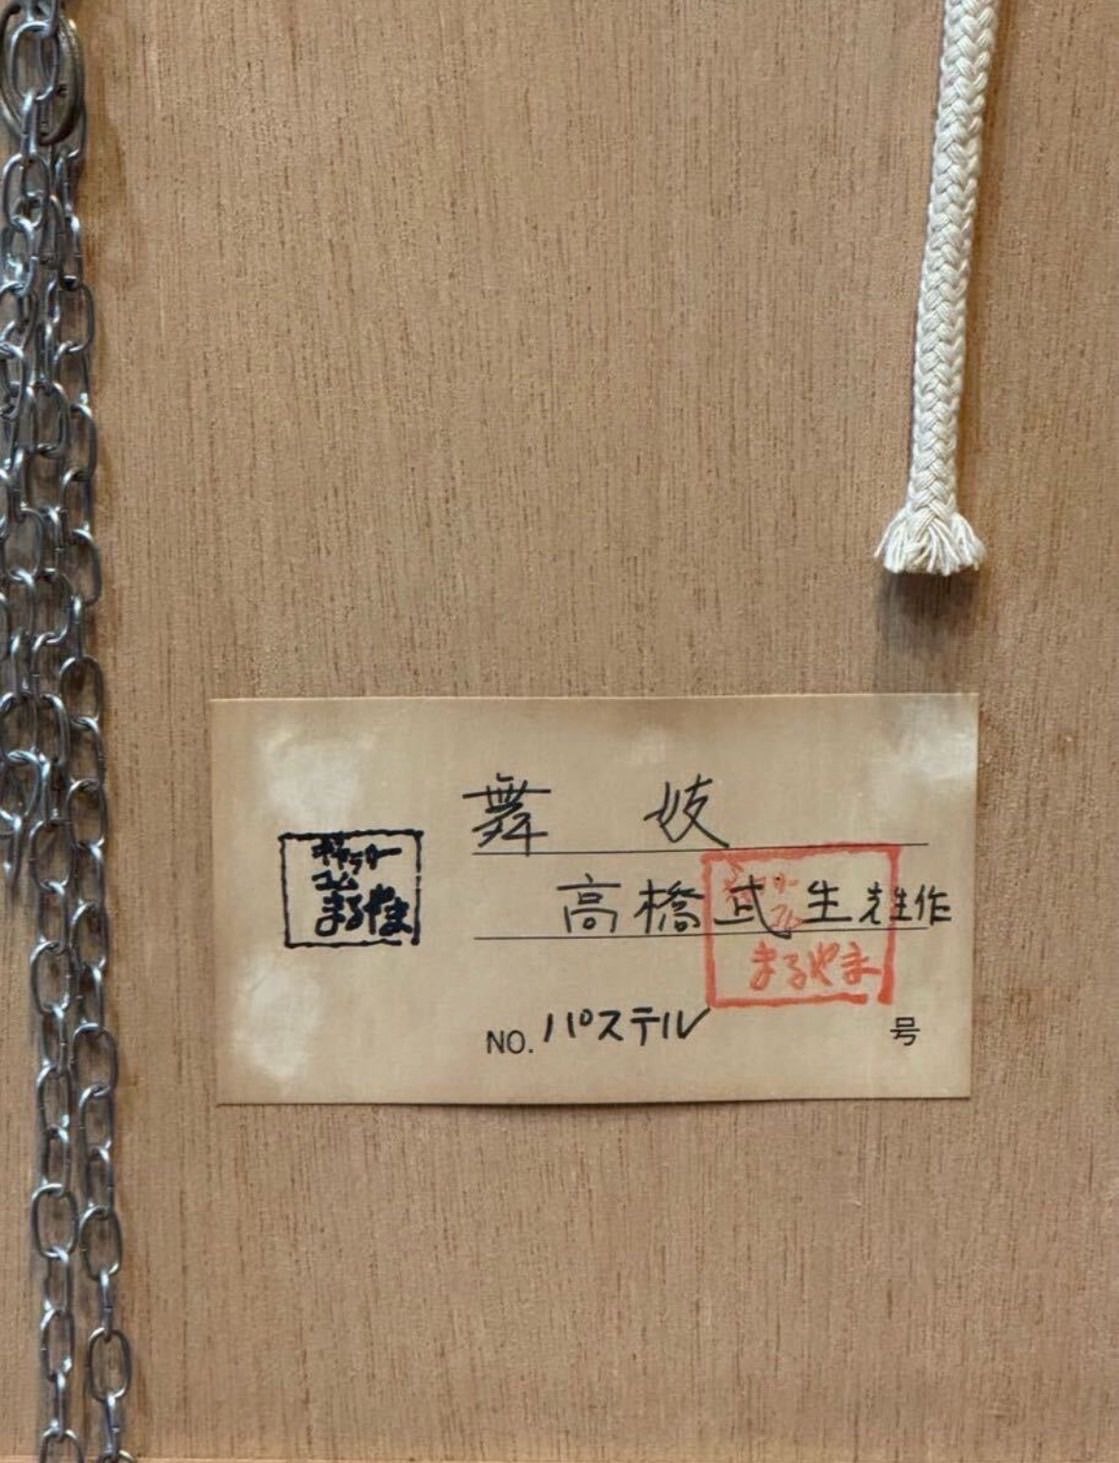 舞妓
高橋武生先生作
NO. パステル 号
ギャラリー
コム
まるやま
まるやま